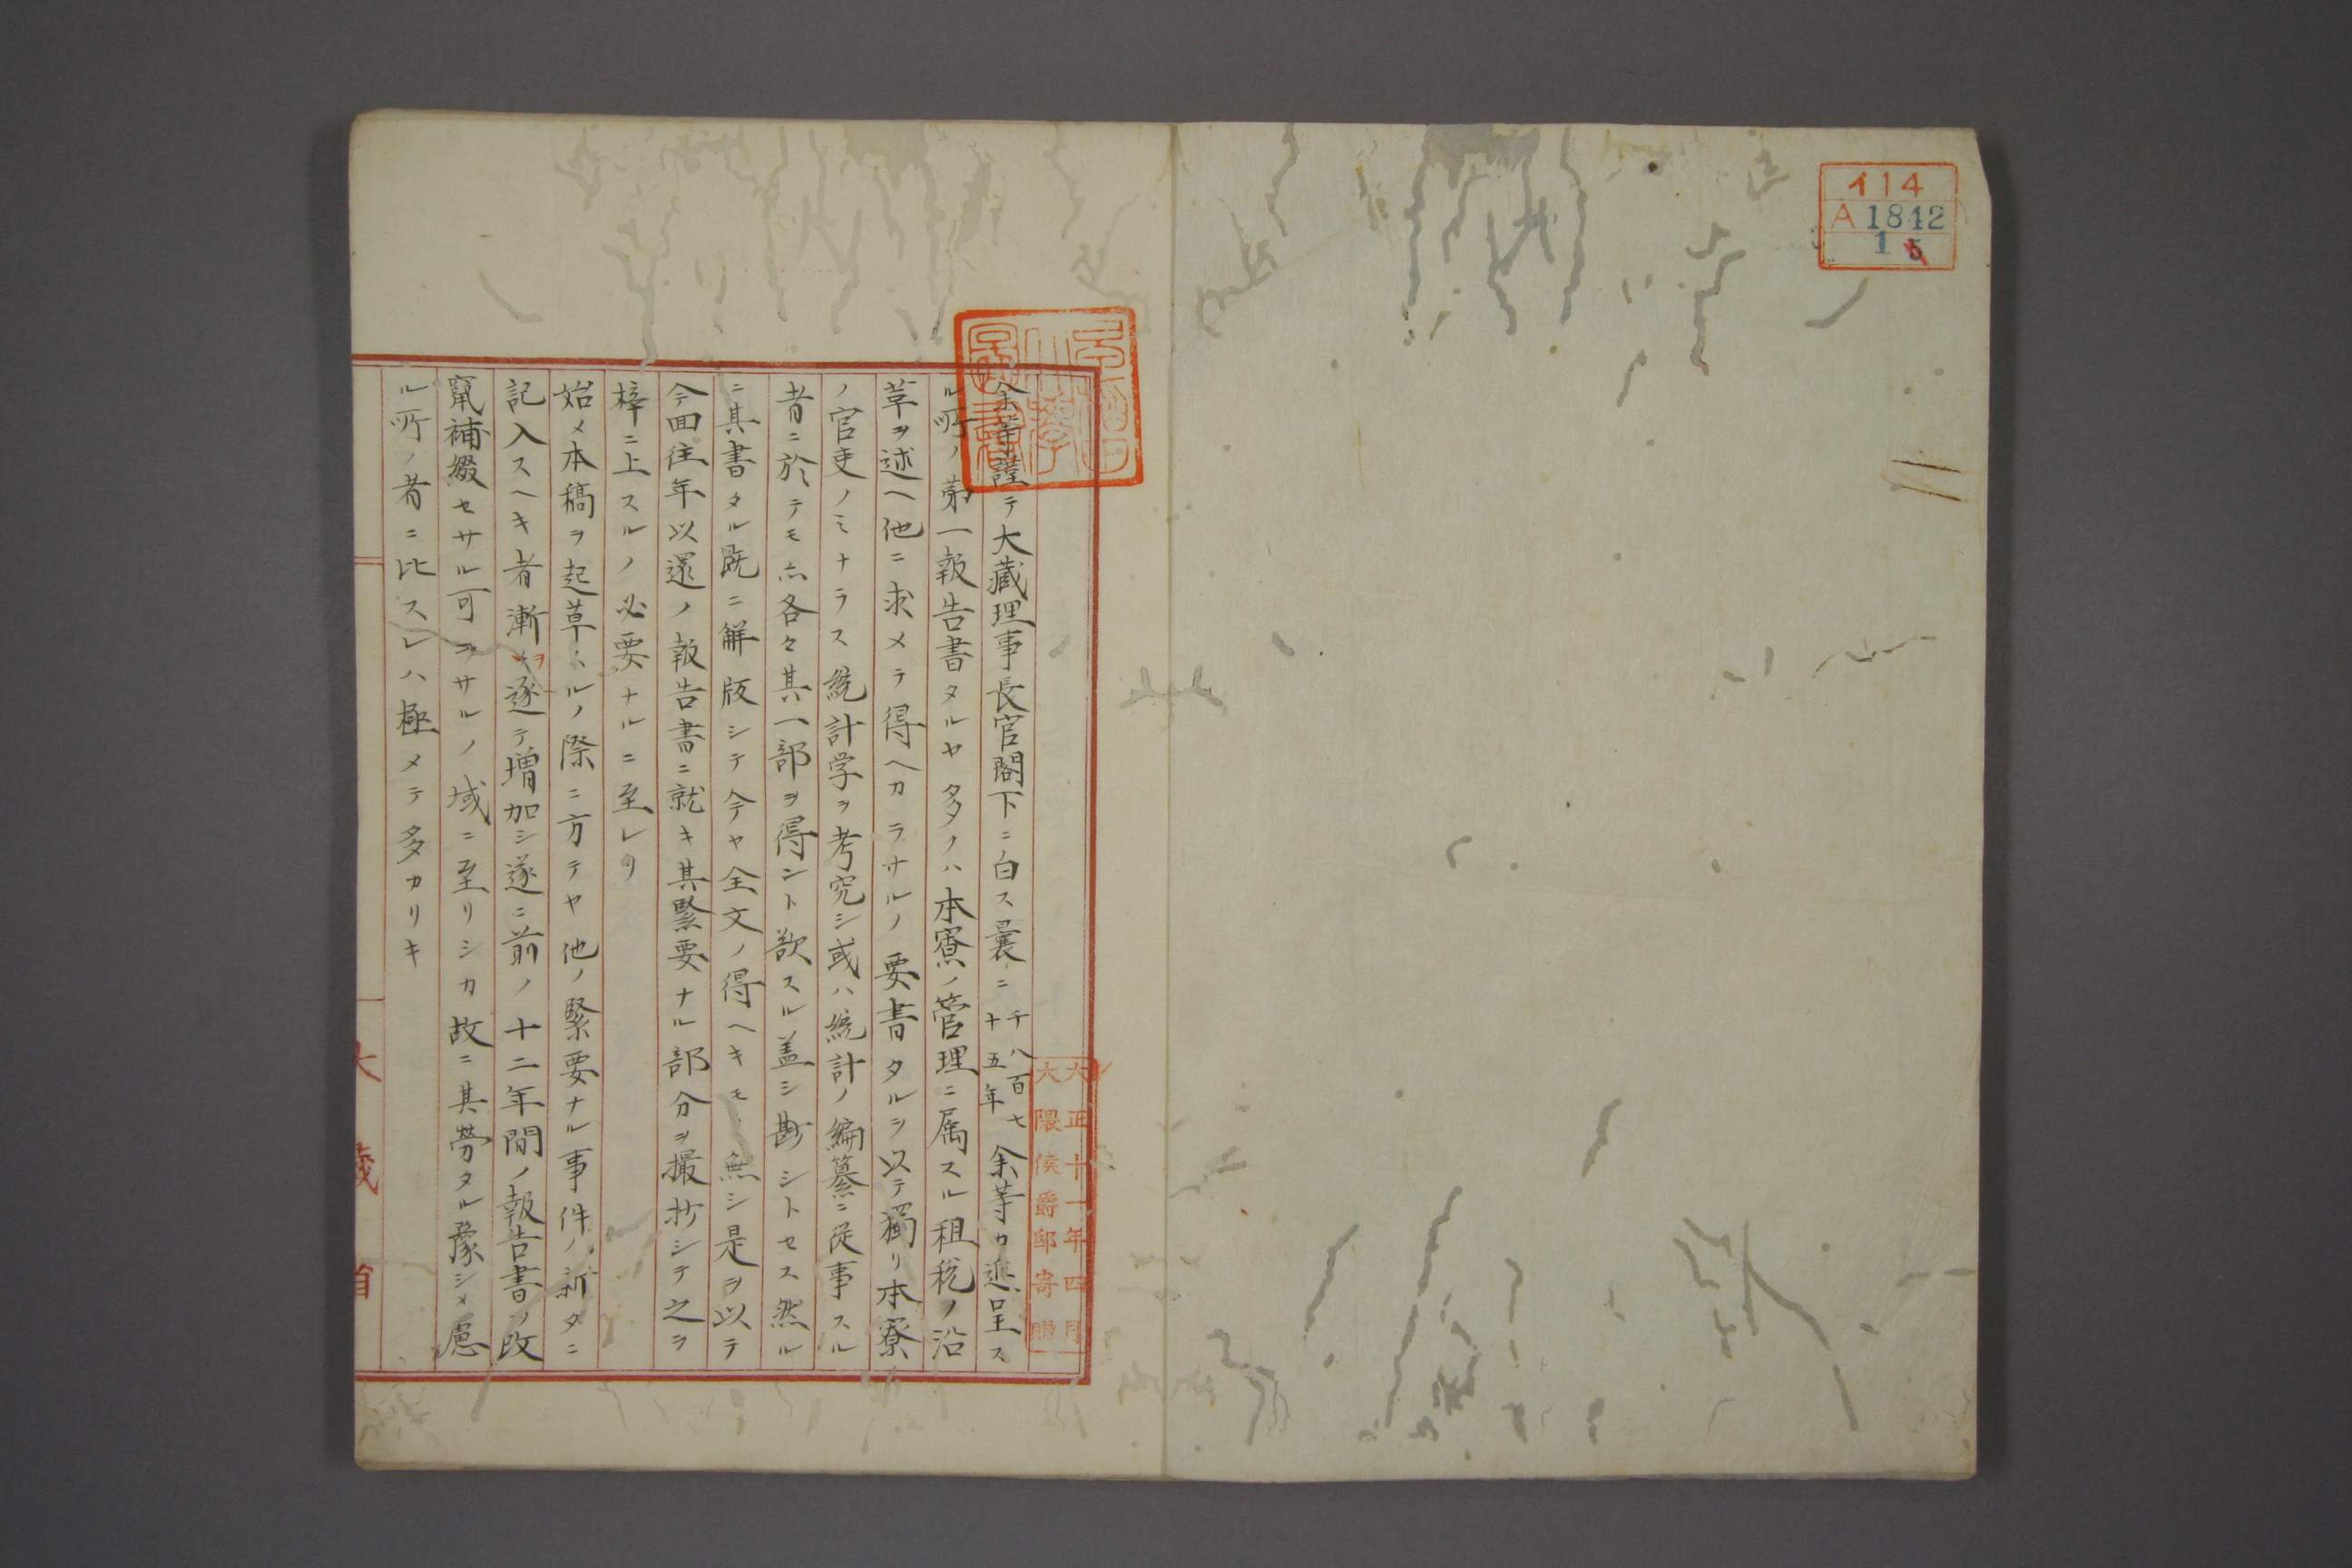 イ14
A 1842
1 5
余等謹テ大蔵理事長官閣下ニ白ス曩ニ千八百七十五年余等カ進呈ス
ル所ノ第一報告書タルヤ多クハ本寮ノ管理ニ属スル租税ノ沿
革ヲ述ヘ他ニ求メテ得ヘカラサルノ要書タルヲ以テ獨リ本寮
ノ官吏ノミナラス統計学ヲ考究シ或ハ統計ノ編纂ニ従事スル
者ニ於テモ亦各々其一部ヲ得ント欲スル盖シ尠シトセス然ル
ニ其書タル既ニ解版シテ今ヤ全文ノ得ヘキモ無シ是ヲ以テ
今回往年以還ノ報告書ニ就キ其緊要ナル部分ヲ撮抄シテ之ヲ
梓ニ上スルノ必要ナルニ至レリ
始メ本稿ヲ起草スルノ際ニ方テヤ他ノ緊要ナル事件ノ新タニ
記入スヘキ者漸ヲ逐テ増加シ遂ニ前ノ十二年間ノ報告書ヲ改
竄補綴セサル可ラサルノ域ニ至リシカ故ニ其労タル豫シメ慮
ル所ノ者ニ比スレハ極メテ多カリキ
大正十一年四月
大隈侯爵邸寄贈
早稲田
大學
圖書
大蔵省